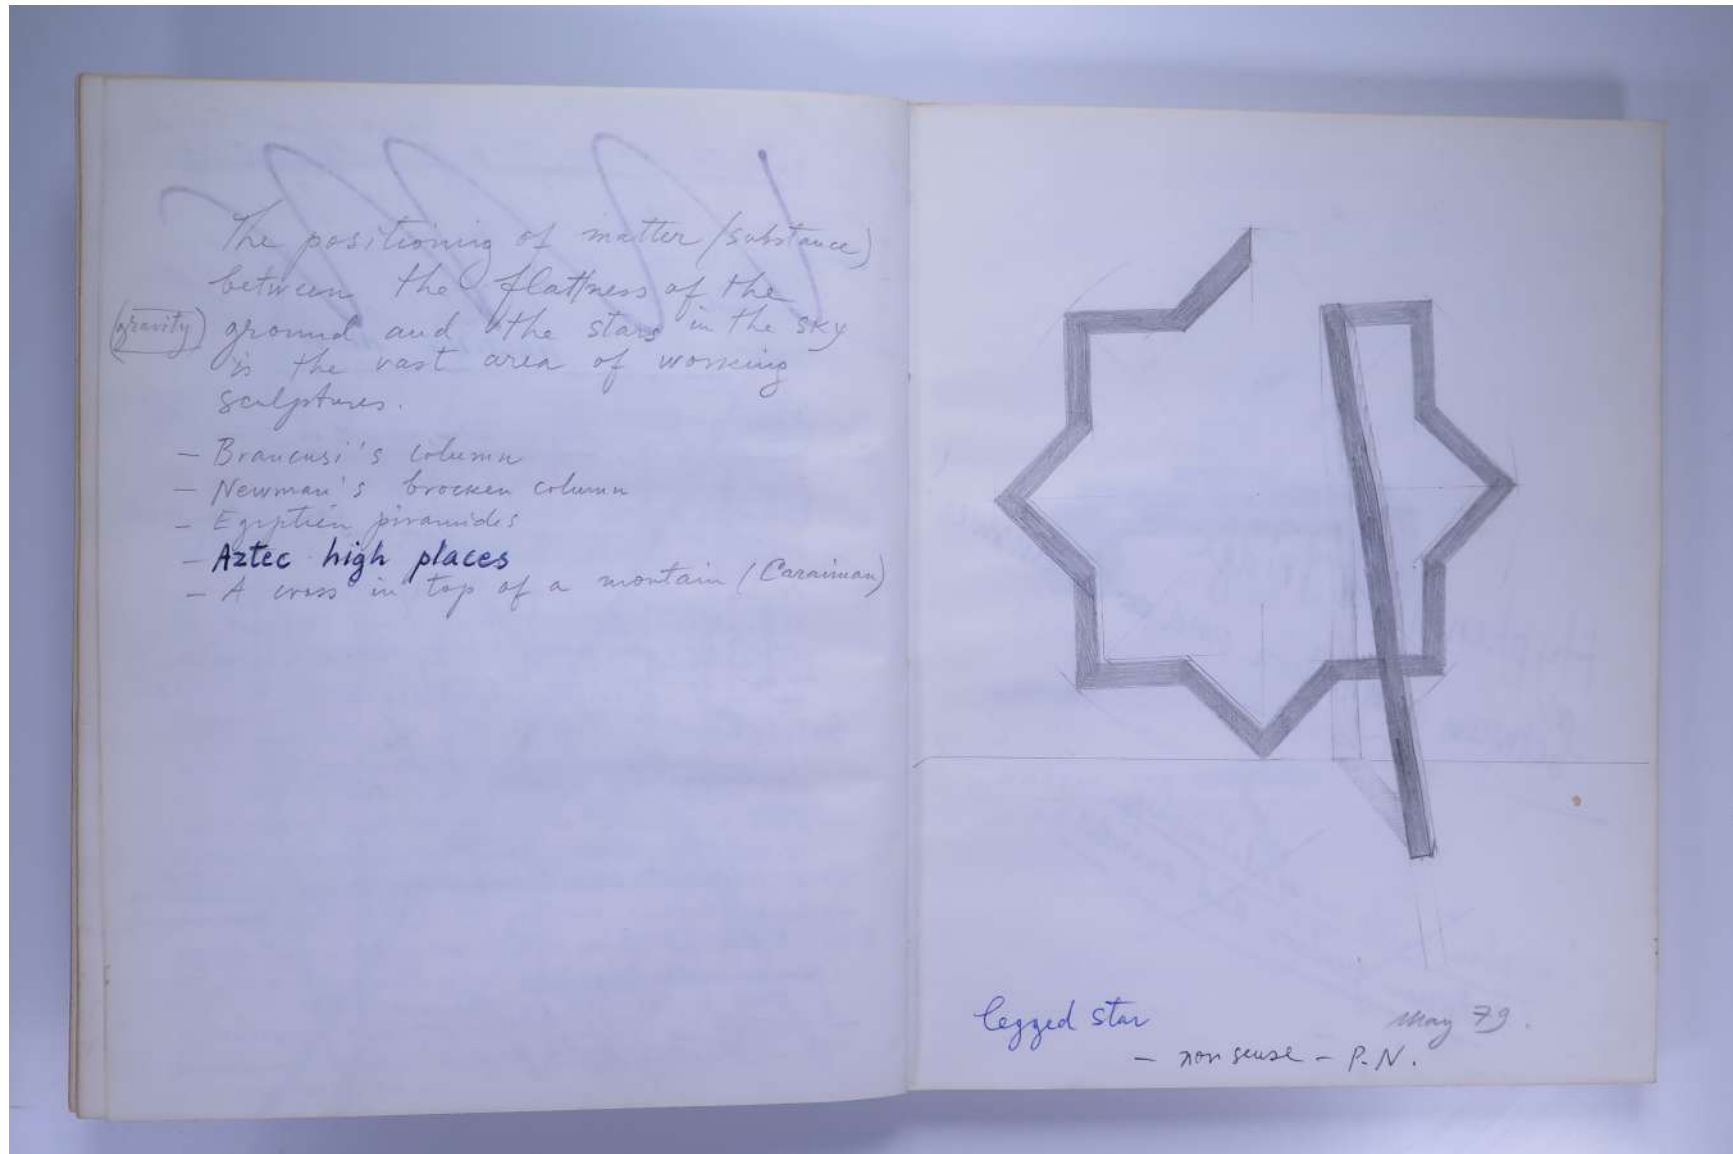 The positioning of matter (substance)
between the flattness of the
(gravity) ground and the stars in the sky
is the vast area of working
sculptures.
— Brancusi's column
— Newman's brocken column
— Egiptien piramides
— Aztec high places
— A cross in top of a montain (Caraiman)
legged star
May 79.
— non sense — P.N.